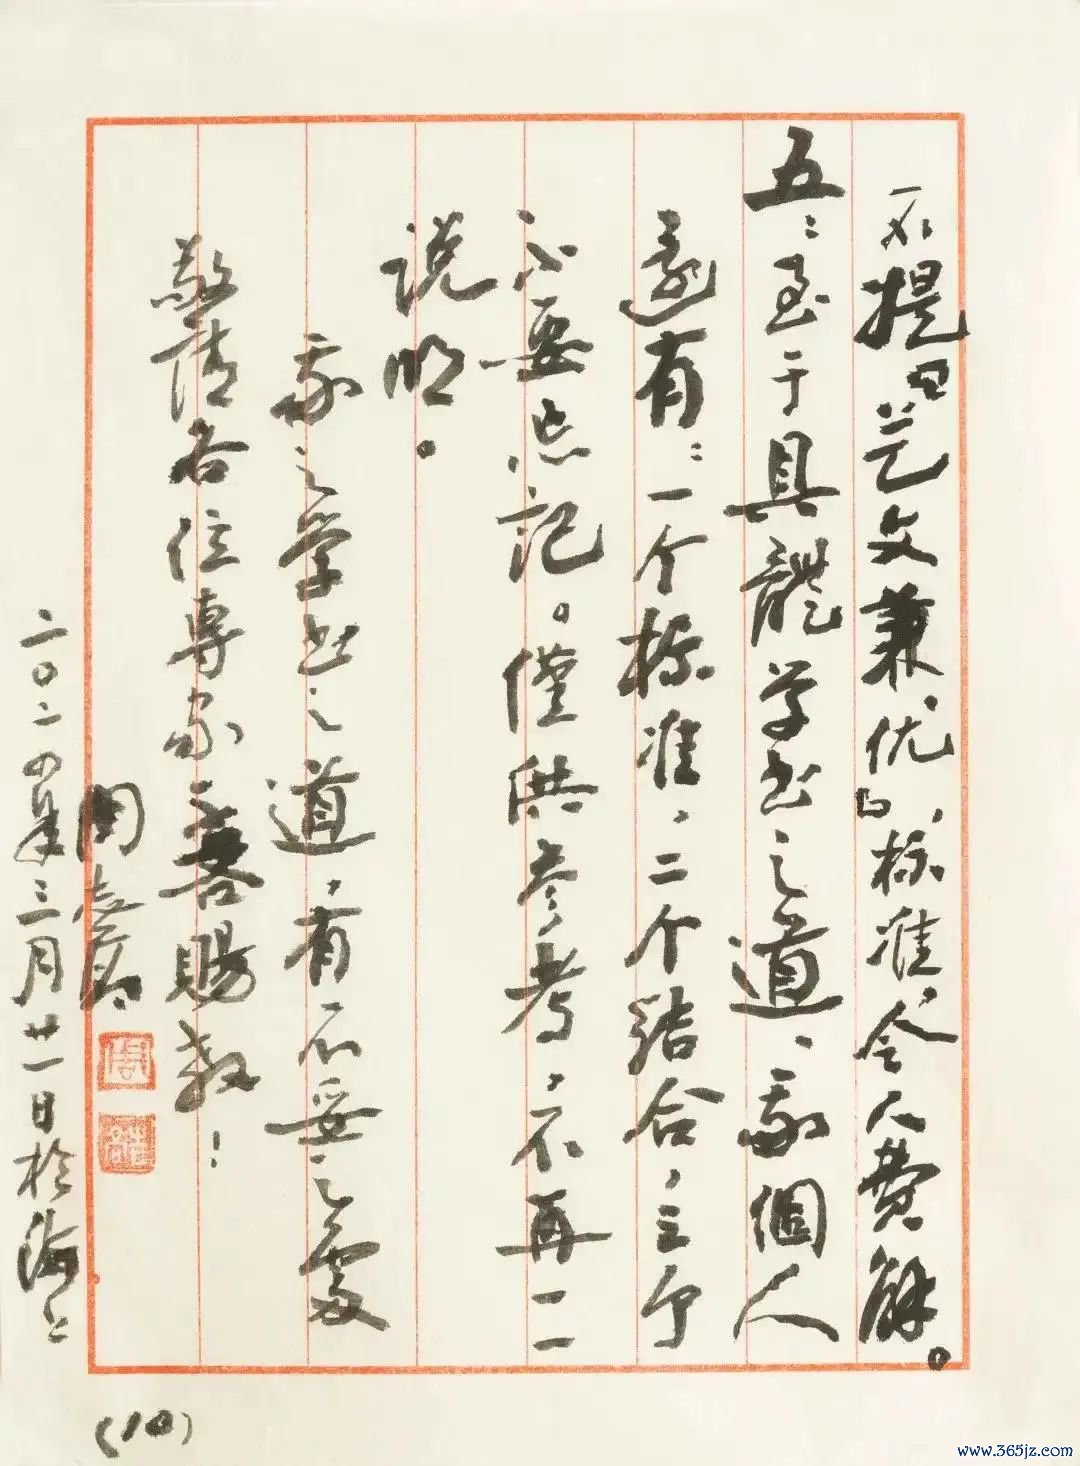 不提「艺文兼优」标准，令人费解。
五：至于具體学书之道、我個人
還有：一个标准，二个结合，三个
不要忘记。僅供参考，不再一一
说明。
我之学书之道，有不妥之處
敬请各位專家不吝賜教！
周志高
周
二〇二四年三月廿一日於海上
(10)
www.365jz.com